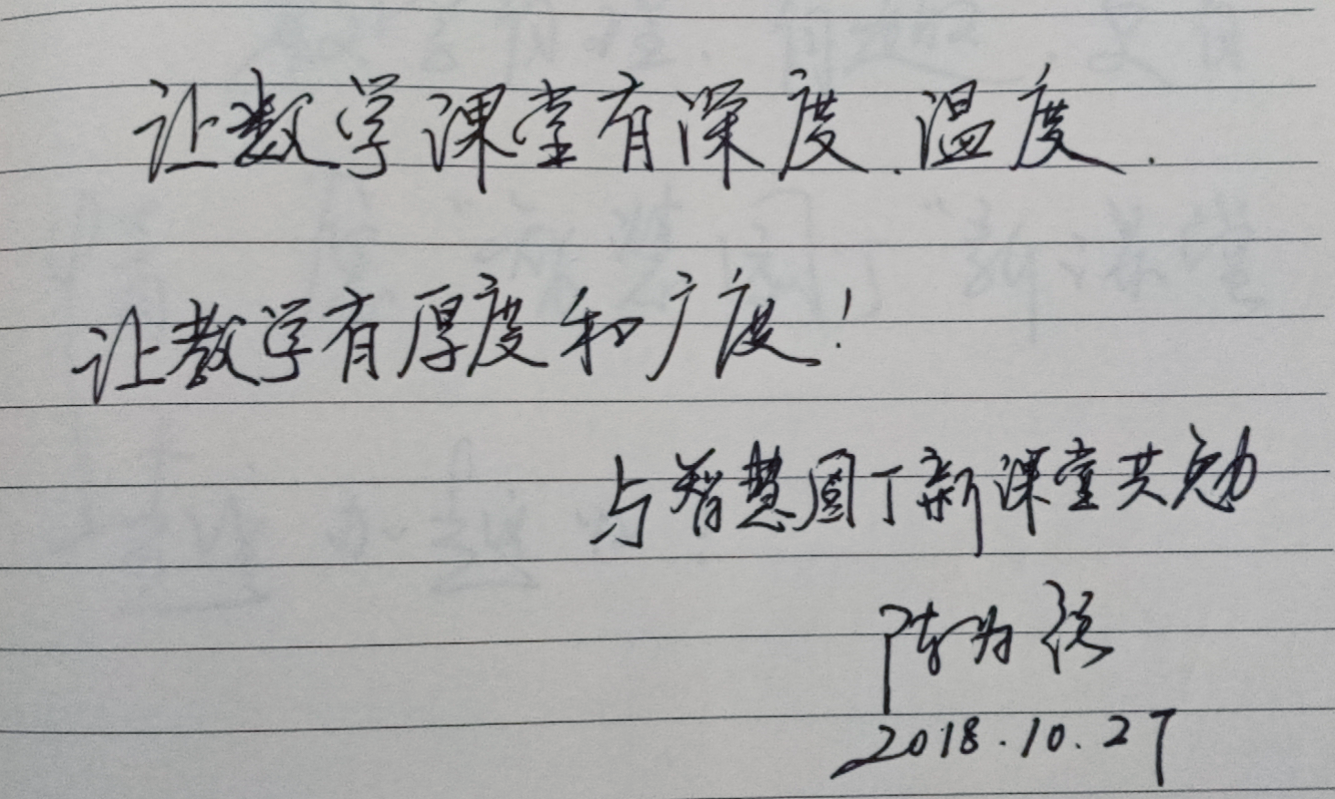 让数学课堂有深度、温度.
让教学有厚度和广度!
与智慧园丁新课堂共勉
陈为强
2018.10.27